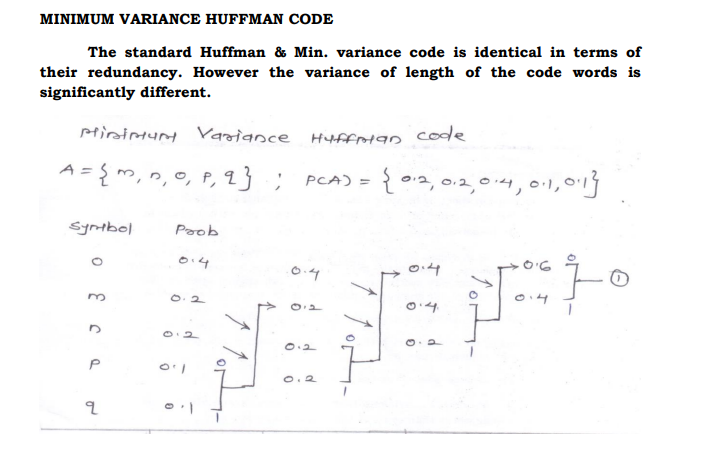 MINIMUM VARIANCE HUFFMAN CODE
The standard Huffman & Min. variance code is identical in terms of
their redundancy. However the variance of length of the code words is
significantly different.
Minimum Variance Huffman code
A = { m, n, o, p, q } ; P(A) = { 0.2, 0.2, 0.4, 0.1, 0.1 }
Symbol Prob
o 0.4 0.4 0.4 0.6 0 1
m 0.2 0.2 0.4 0 0.4 1
n 0.2 0.2 0 0.2 1
p 0.1 0 0.2 1
q 0.1 1